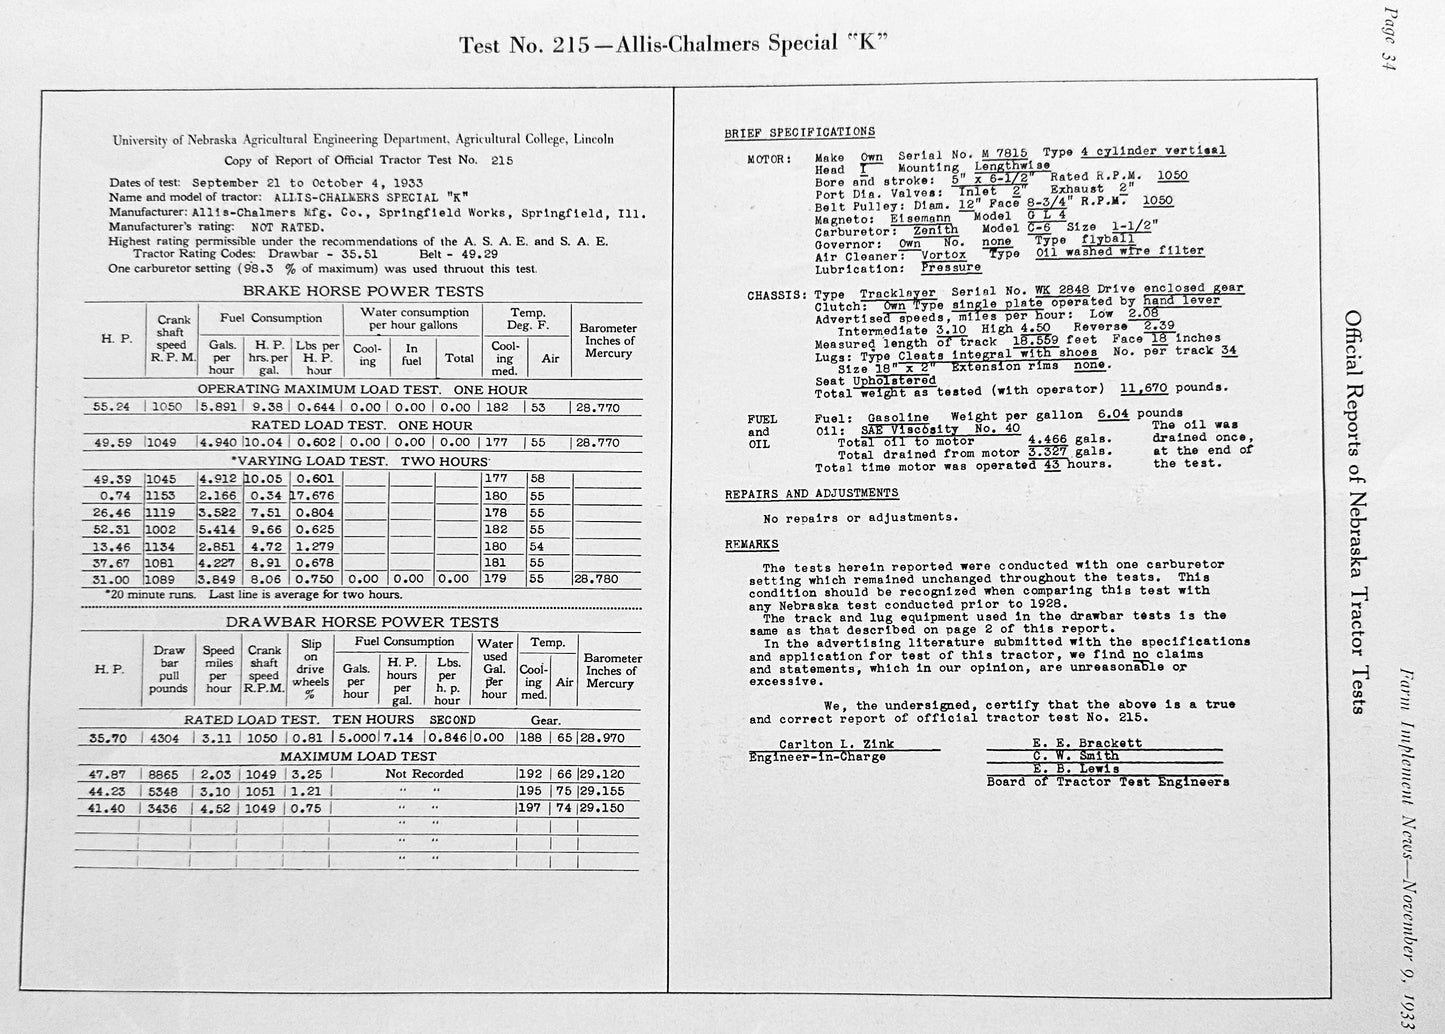 Page 34
Test No. 215—Allis-Chalmers Special "K"
University of Nebraska Agricultural Engineering Department, Agricultural College, Lincoln
Copy of Report of Official Tractor Test No. 215
Dates of test: September 21 to October 4, 1933
Name and model of tractor: ALLIS-CHALMERS SPECIAL "K"
Manufacturer: Allis-Chalmers Mfg. Co., Springfield Works, Springfield, Ill.
Manufacturer's rating: NOT RATED.
Highest rating permissible under the recommendations of the A. S. A. E. and S. A. E.
Tractor Rating Codes: Drawbar - 35.51 Belt - 49.29
One carburetor setting (98.3 % of maximum) was used thruout this test.
BRAKE HORSE POWER TESTS
H. P. | Crank shaft speed R. P. M. | Fuel Consumption | Water consumption per hour gallons | Temp. Deg. F. | Barometer Inches of Mercury
Gals. per hour | H. P. hrs. per gal. | Lbs per H. P. hour | Cool- ing | In fuel | Total | Cool- ing med. | Air
OPERATING MAXIMUM LOAD TEST. ONE HOUR
55.24 | 1050 | 5.891 | 9.38 | 0.644 | 0.00 | 0.00 | 0.00 | 182 | 53 | 28.770
RATED LOAD TEST. ONE HOUR
49.59 | 1049 | 4.940 | 10.04 | 0.602 | 0.00 | 0.00 | 0.00 | 177 | 55 | 28.770
*VARYING LOAD TEST. TWO HOURS
49.39 | 1045 | 4.912 | 10.05 | 0.601 | 177 | 58
0.74 | 1153 | 2.166 | 0.34 | 17.676 | 180 | 55
26.46 | 1119 | 3.522 | 7.51 | 0.804 | 178 | 55
52.31 | 1002 | 5.414 | 9.66 | 0.625 | 182 | 55
13.46 | 1134 | 2.851 | 4.72 | 1.279 | 180 | 54
37.67 | 1081 | 4.227 | 8.91 | 0.678 | 181 | 55
31.00 | 1089 | 3.849 | 8.06 | 0.750 | 0.00 | 0.00 | 0.00 | 179 | 55 | 28.780
*20 minute runs. Last line is average for two hours.
DRAWBAR HORSE POWER TESTS
H. P. | Draw bar pull pounds | Speed miles per hour | Crank shaft speed R.P.M. | Slip on drive wheels % | Fuel Consumption | Water used Gal. per hour | Temp. | Barometer Inches of Mercury
Gals. per hour | H. P. hours per gal. | Lbs. per h. p. hour | Cool- ing med. | Air
RATED LOAD TEST. TEN HOURS SECOND Gear.
35.70 | 4304 | 3.11 | 1050 | 0.81 | 5.000 | 7.14 | 0.846 | 0.00 | 188 | 65 | 28.970
MAXIMUM LOAD TEST
47.87 | 8865 | 2.03 | 1049 | 3.25 | Not Recorded | 192 | 66 | 29.120
44.23 | 5348 | 3.10 | 1051 | 1.21 | " " | 195 | 75 | 29.155
41.40 | 3436 | 4.52 | 1049 | 0.75 | " " | 197 | 74 | 29.150
" "
" "
" "
BRIEF SPECIFICATIONS
MOTOR: Make Own Serial No. M 7815 Type 4 cylinder vertical
Head I Mounting Lengthwise
Bore and stroke: 5" x 6-1/2" Rated R.P.M. 1050
Port Dia. Valves: Inlet 2" Exhaust 2"
Belt Pulley: Diam. 12" Face 8-3/4" R.P.M. 1050
Magneto: Eisemann Model G L 4
Carburetor: Zenith Model C-6 Size 1-1/2"
Governor: Own No. none Type flyball
Air Cleaner: Vortox Type Oil washed wire filter
Lubrication: Pressure
CHASSIS: Type Tracklayer Serial No. WK 2848 Drive enclosed gear
Clutch: Own Type single plate operated by hand lever
Advertised speeds, miles per hour: Low 2.08
Intermediate 3.10 High 4.50 Reverse 2.39
Measured length of track 18.559 feet Face 18 inches
Lugs: Type Cleats integral with shoes No. per track 34
Size 18" x 2" Extension rims none.
Seat Upholstered
Total weight as tested (with operator) 11,670 pounds.
FUEL and OIL
Fuel: Gasoline Weight per gallon 6.04 pounds
Oil: SAE Viscosity No. 40
Total oil to motor 4.466 gals.
Total drained from motor 3.327 gals.
Total time motor was operated 43 hours.
The oil was
drained once,
at the end of
the test.
REPAIRS AND ADJUSTMENTS
No repairs or adjustments.
REMARKS
The tests herein reported were conducted with one carburetor
setting which remained unchanged throughout the tests. This
condition should be recognized when comparing this test with
any Nebraska test conducted prior to 1928.
The track and lug equipment used in the drawbar tests is the
same as that described on page 2 of this report.
In the advertising literature submitted with the specifications
and application for test of this tractor, we find no claims
and statements, which in our opinion, are unreasonable or
excessive.
We, the undersigned, certify that the above is a true
and correct report of official tractor test No. 215.
Carlton L. Zink
Engineer-in-Charge
E. E. Brackett
C. W. Smith
E. B. Lewis
Board of Tractor Test Engineers
Official Reports of Nebraska Tractor Tests
Farm Implement News—November 9, 1933